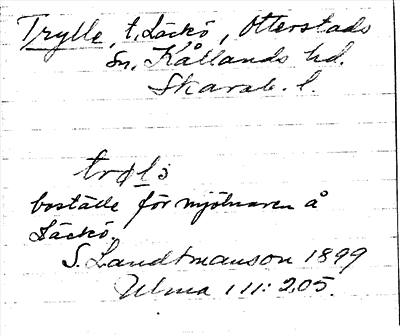 Trylle, t. Läckö, Otterstads
sn. Kållands hd.
Skarab. l.
boställe för mjölnaren å
Läckö
S. Landtmanson 1899
Ulma 111:205.